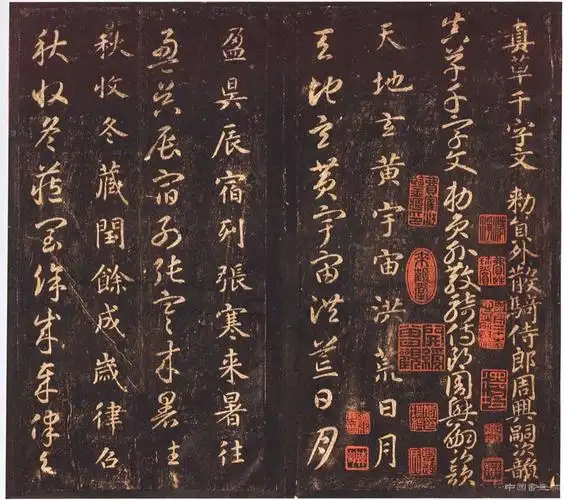 真草千字文 勅員外散騎侍郎周興嗣次韻
真草千字文 勅員外散騎侍郎周興嗣次韻
天地玄黃宇宙洪荒日月
天地玄黃宇宙洪荒日月
盈昃辰宿列張寒来暑往
盈昃辰宿列張寒来暑往
秋收冬藏閏餘成歲律呂
秋收冬藏閏餘成歲律呂